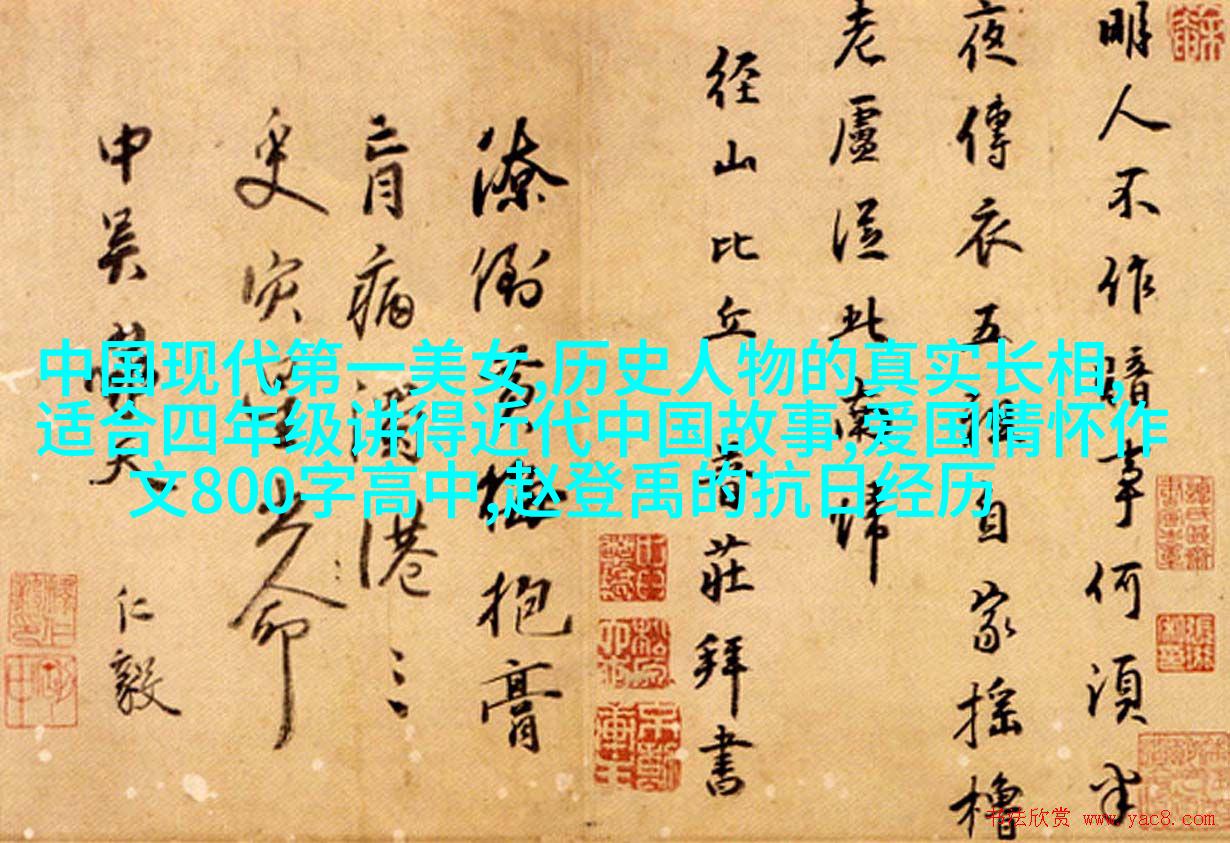 中国现代第一美女,历史人物的真实长相,
适合四年级讲得近代中国故事,爱国情怀作
文800字高中,赵登禹的抗日经历
明人不作暗事何須半
夜傳衣五祖自家搖櫓
老盧從此南歸
径山比丘莊拜書
潦倒黄梅抱膏
肓病濁港
更灾人命
中吴仁毅
书法欣赏 www.yac8.com